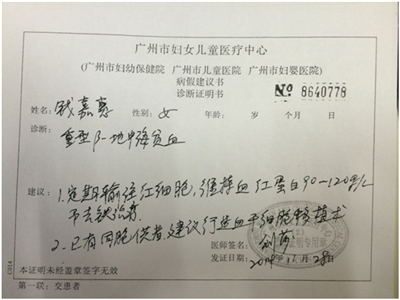 广州市妇女儿童医疗中心
(广州市妇幼保健院 广州市儿童医院 广州市妇婴医院)
病假建议书
诊断证明书
№ 8640778
姓名: 钱嘉惠 性别: 女 年龄: 岁 个月 日
诊断:
重型β-地中海贫血
建议: 1.定期输注红细胞,维持血红蛋白90-120g/L
去铁治疗.
2.已有同胞供者,建议行造血干细胞移植术
医师签名:
发证日期: 2014. 11月28日
本证明未经盖章签字无效
第一联: 交患者